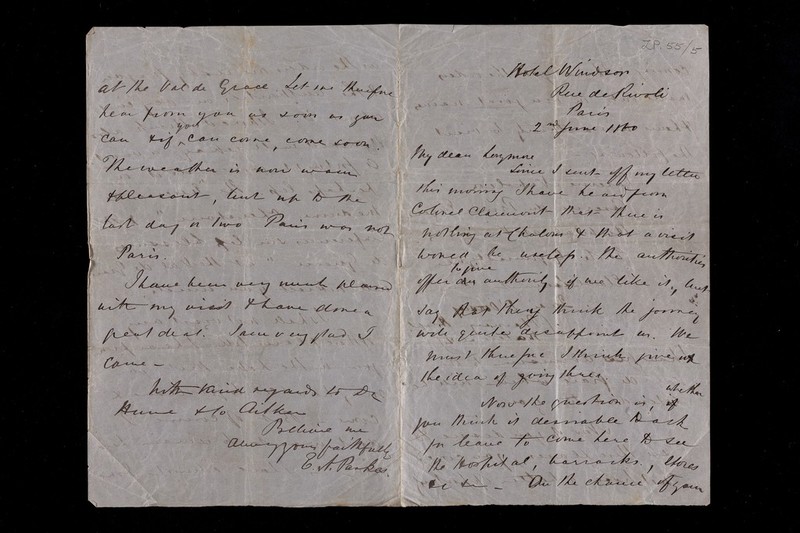 J.P. 55/5
Hotel Windsor
Rue de Rivoli
Paris
2nd June 1860
My dear Longmore
Since I sent off my letter
this morning I have heard from
Colonel Claremont that there is
nothing at Chalons & that a visit
would be useless. The authorities
offer to give an authority if we like it, but
say that they think the journey
will quite disappoint us. We
must therefore I think give up
the idea of going there.
Now the question is, whether
you think it desirable to ask
for leave to come here to see
the Hospital, barracks, Stores
&c &c – On the chance of your
at the Val de Grace Let me therefore
hear from you as soon as you
can & if you can come, come soon
The weather is now warm
& pleasant, but up to the
last day or two Paris was not
Paris.
I have been very much pleased
with my visit & have done a
great deal. I am very glad I
came –
With kind regards to Dr
Hume & to Aitken
Believe me
always yours faithfully
E A Parkes.